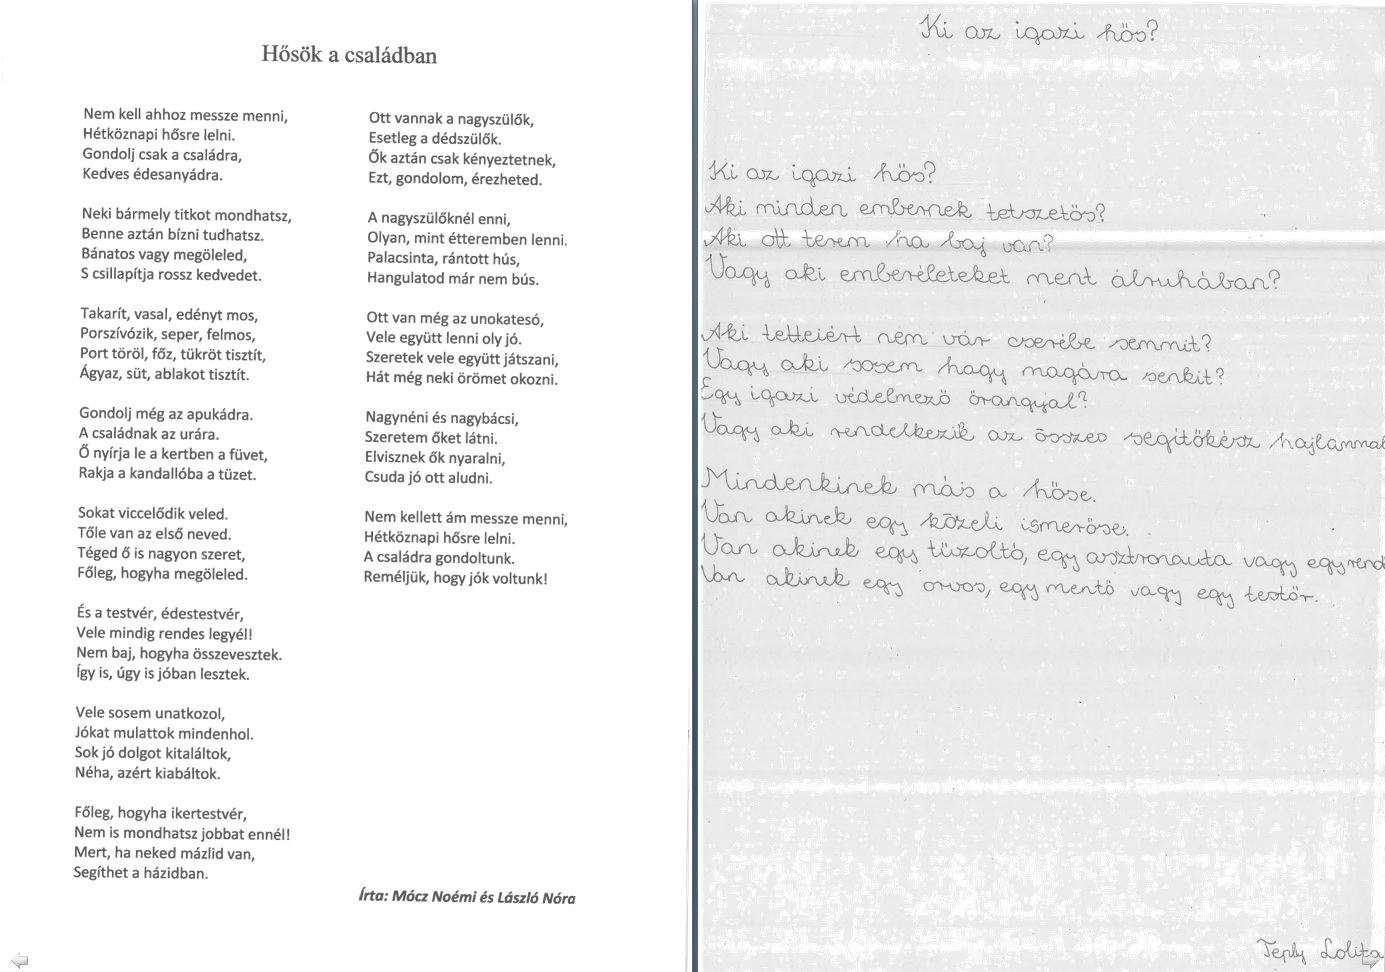 Hősök a családban
Nem kell ahhoz messze menni,
Hétköznapi hősre lelni.
Gondolj csak a családra,
Kedves édesanyádra.
Neki bármely titkot mondhatsz,
Benne aztán bízni tudhatsz.
Bánatos vagy megöleled,
S csillapítja rossz kedvedet.
Takarít, vasal, edényt mos,
Porszívózik, seper, felmos,
Port töröl, főz, tükröt tisztít,
Ágyaz, süt, ablakot tisztít.
Gondolj még az apukádra.
A családnak az urára.
Ő nyírja le a kertben a füvet,
Rakja a kandallóba a tüzet.
Sokat viccelődik veled.
Tőle van az első neved.
Téged ő is nagyon szeret,
Főleg, hogyha megöleled.
És a testvér, édestestvér,
Vele mindig rendes legyél!
Nem baj, hogyha összevesztek.
Így is, úgy is jóban lesztek.
Vele sosem unatkozol,
Jókat mulattok mindenhol.
Sok jó dolgot kitaláltok,
Néha, azért kiabáltok.
Főleg, hogyha ikertestvér,
Nem is mondhatsz jobbat ennél!
Mert, ha neked mázlid van,
Segíthet a házidban.
Ott vannak a nagyszülők,
Esetleg a dédszülők.
Ők aztán csak kényeztetnek,
Ezt, gondolom, érezheted.
A nagyszülőknél enni,
Olyan, mint étteremben lenni.
Palacsinta, rántott hús,
Hangulatod már nem bús.
Ott van még az unokatesó,
Vele együtt lenni oly jó.
Szeretek vele együtt játszani,
Hát még neki örömet okozni.
Nagynéni és nagybácsi,
Szeretem őket látni.
Elvisznek ők nyaralni,
Csuda jó ott aludni.
Nem kellett ám messze menni,
Hétköznapi hősre lelni.
A családra gondoltunk.
Reméljük, hogy jók voltunk!
Írta: Mócz Noémi és László Nóra
Ki az igazi hős?
Ki az igazi hős?
Aki minden embernek tetszetős?
Aki ott terem ha baj van?
Vagy aki emberéleteket ment álruhában?
Aki tetteiért nem vár cserébe semmit?
Vagy aki sosem hagy magára senkit?
Egy igazi védelmező őrangyal?
Vagy aki rendelkezik az összes segítőkész hajlammal
Mindenkinek más a hőse.
Van akinek egy közeli ismerőse.
Van akinek egy tűzoltó, egy asztronauta vagy egy rend
Van akinek egy orvos, egy mentő vagy egy testőr.
Teply Lolita